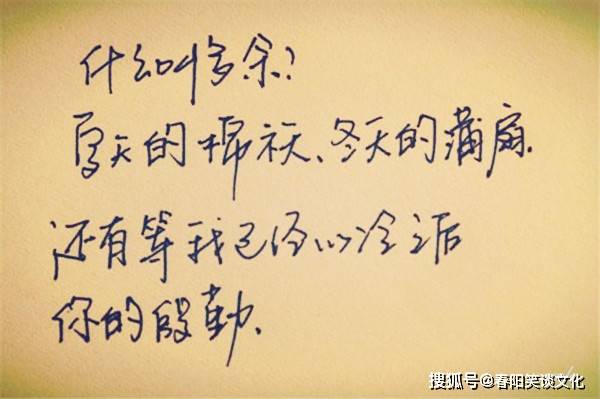 什么叫多余?
夏天的棉袄、冬天的蒲扇.
还有等我已经心冷之后
你的殷勤.
搜狐号@春阳笑谈文化